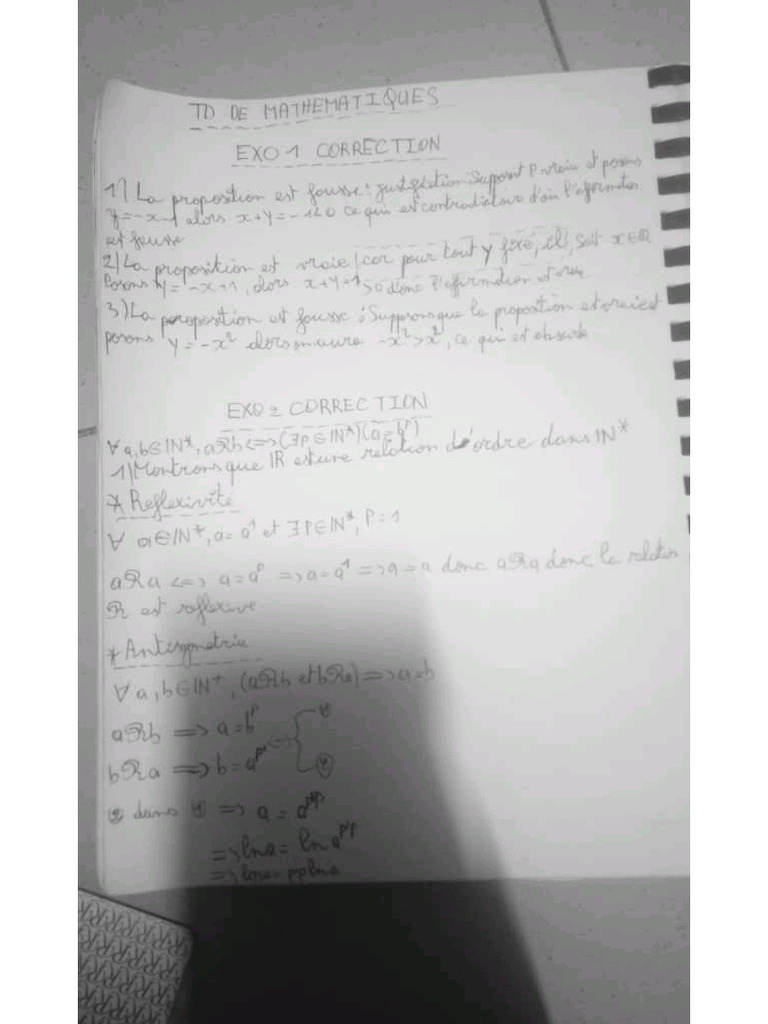 TD DE MATHEMATIQUES
EXO 1 CORRECTION
1) La proposition est fausse : justification: Supposant P vraie et posons
y=-x-1 alors x+y=-1<0 ce qui est contradictoire d'où l'affirmation
est fausse
2) La proposition est vraie car pour tout y fixé, soit x∈IR
Posons y=-x+1, alors x+y=1>0 donc l'affirmation est vraie
3) La proposition est fausse : Supposons que la proposition est vraie et
posons y=-x² alors on aura -x²>x², ce qui est absurde
EXO 2 CORRECTION
∀a,b∈IN*, aRb <=> (∃p∈IN*)(a=b^p)
1) Montrons que IR est une relation d'ordre dans IN*
* Reflexivité
∀ a∈IN*, a=a^1 et ∃P∈IN*, P=1
aRa <=> a=a^p => a=a^1 => a=a donc aRa donc la relation
R est reflexive
* Antisymetrie
∀a,b∈IN*, (aRb et bRa) => a=b
aRb => a=b^p ①
bRa => b=a^p' ②
② dans ① => a=a^p'p
=> lna = ln a^p'p
=> lna = pp lna